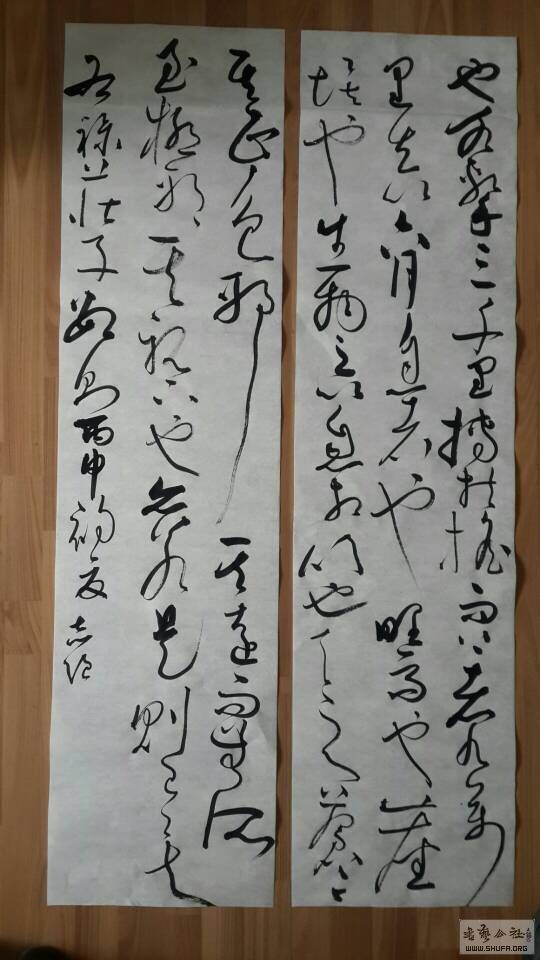 也水擊三千里摶扶搖而上者九萬
里去以六月息者也野馬也塵
埃也生物之以息相吹也天之蒼々
其正色邪其遠而無所
至極邪其視下也亦若是則已矣
右録莊子數句丙申初夏志
书艺公社
WWW.SHUFA.ORG